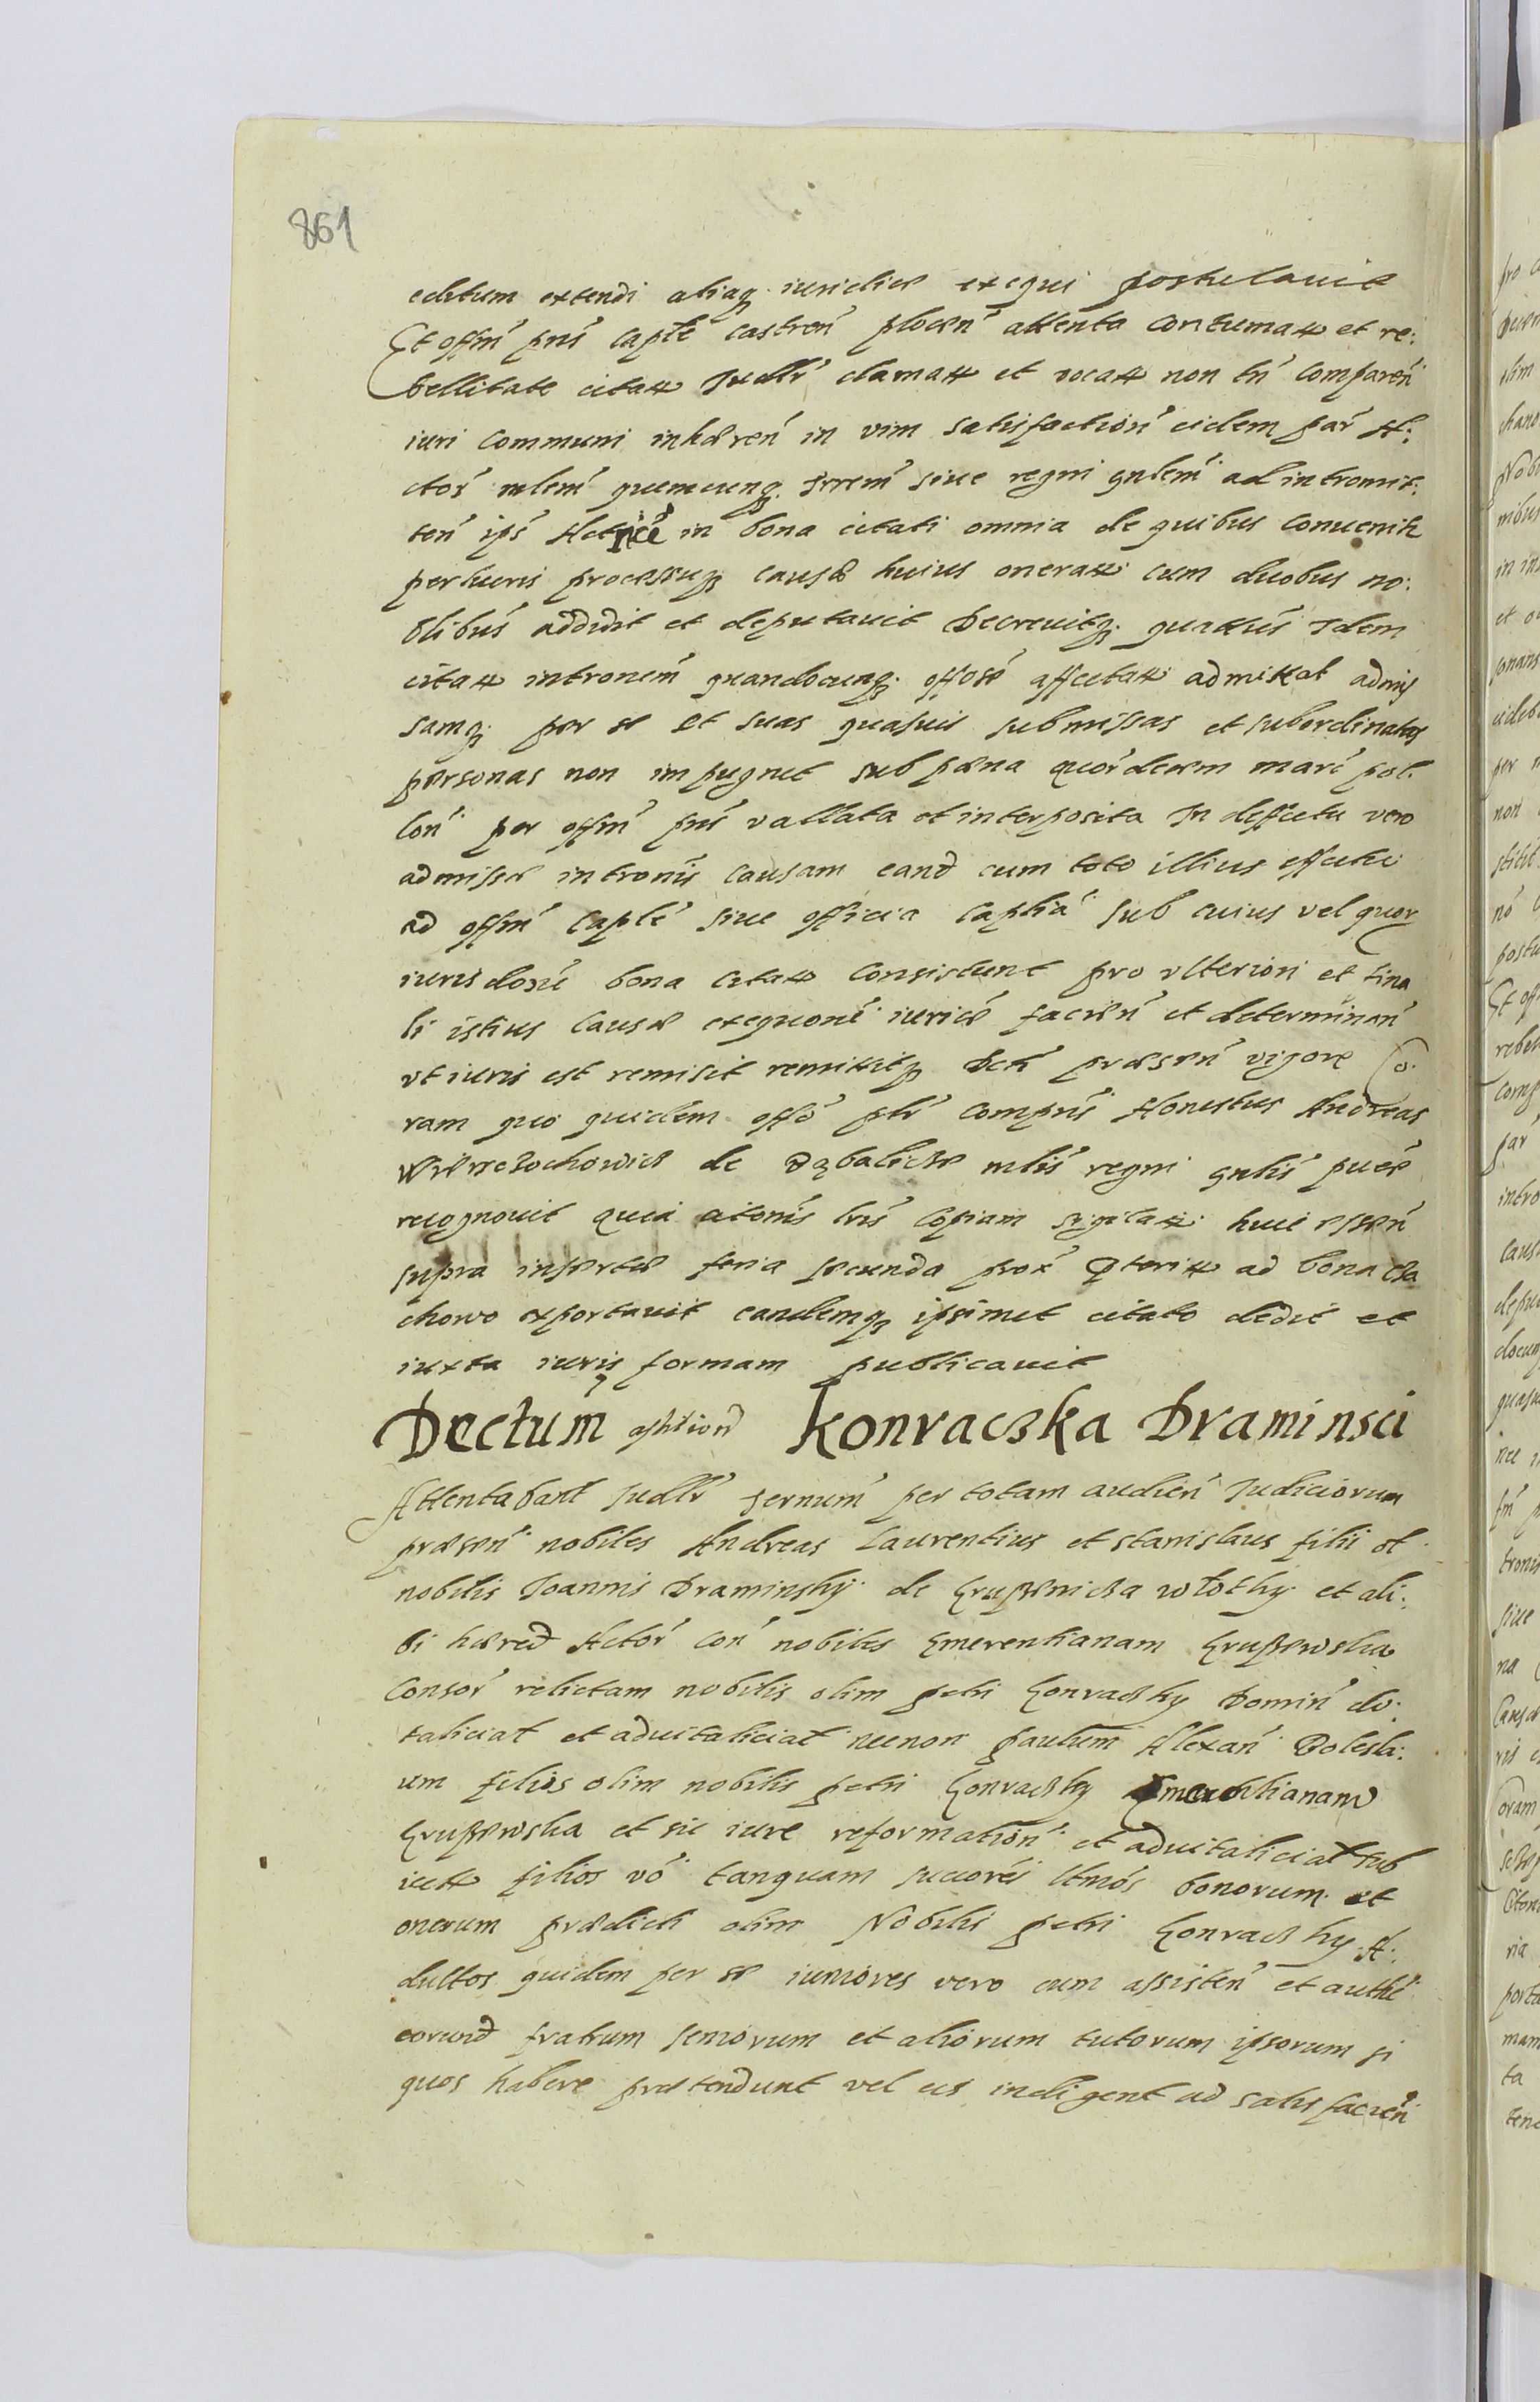 861
editum extendi aliaq iuridice exequi postulavit
Et offm pns caple castren plocen attenta contuma et re:
bellitate cita Judlr clama et voca non tn comparen
iuri communi inhæren in vim satisfaction eidem par A:
ctor mlem quemcunq trrem siue regni gnlem ad intromit:
ten ips Actrice in bona citati omnia de quibus convenit
per iuris processuq causæ huius onera cum duobus no:
bilibus addidit et deputavit Decrevitq quatus Idem
cita intronem quandocunq offose affecta admittat admis
samq per se et suas quasvis submissas et subordinatas
personas non impugnet sub pæna quordecem marc pol.
con per offm pns vallata et interposita In defectu vero
admissæ intronis causam eand cum toto illius effectu
ad offm caple siue officia caplia sub cuius vel quor
iurisdone bona cita consistunt pro ulteriori et fina
li istius causæ exequone iurice facien et determinan
ut iuris est remisit remittitq Dcti præsen vigore Co:
ram quo quidem offo plr comprns Honestus Andreas
de mlis regni gnlis pues
recognovit quia citonis lris copiam sigilla huic essen
supra insertæ feria secunda prox pterit ad bona
chowo exportavit eandemq ipsimet citato dedit et
iuxta iuris formam publicavit
Dectum Konraczka Draminsci
Attentabant Judlr ternum per totam audien Judiciorum
præsen nobiles Andreas Laurentius et Stanislaus filii ol
nobilis Joannis Draminsky de wlothy et ali:
bi hæred Actor con nobiles Emerentianam Grussewska
Consor relictam nobilis olim Petri Konraczky Domin do:
taliciat et advitaliciat necnon Paulum Alexan Bolesla:
um filios olim nobilis Petri Konraczky Emerentianam
Grussewska et sic iure reformation et advitaliciat sub
iect filios vo tanquam succores ltmos bonorum et
onerum prædicti olim Nobilis Petri Konraczky A:
dultos quidem per se iuniores vero cum assisten et auth
eorund fratrum seniorum et aliorum tutorum ipsorum si
quos habere prætendunt vel eis indigent ad satisfacien